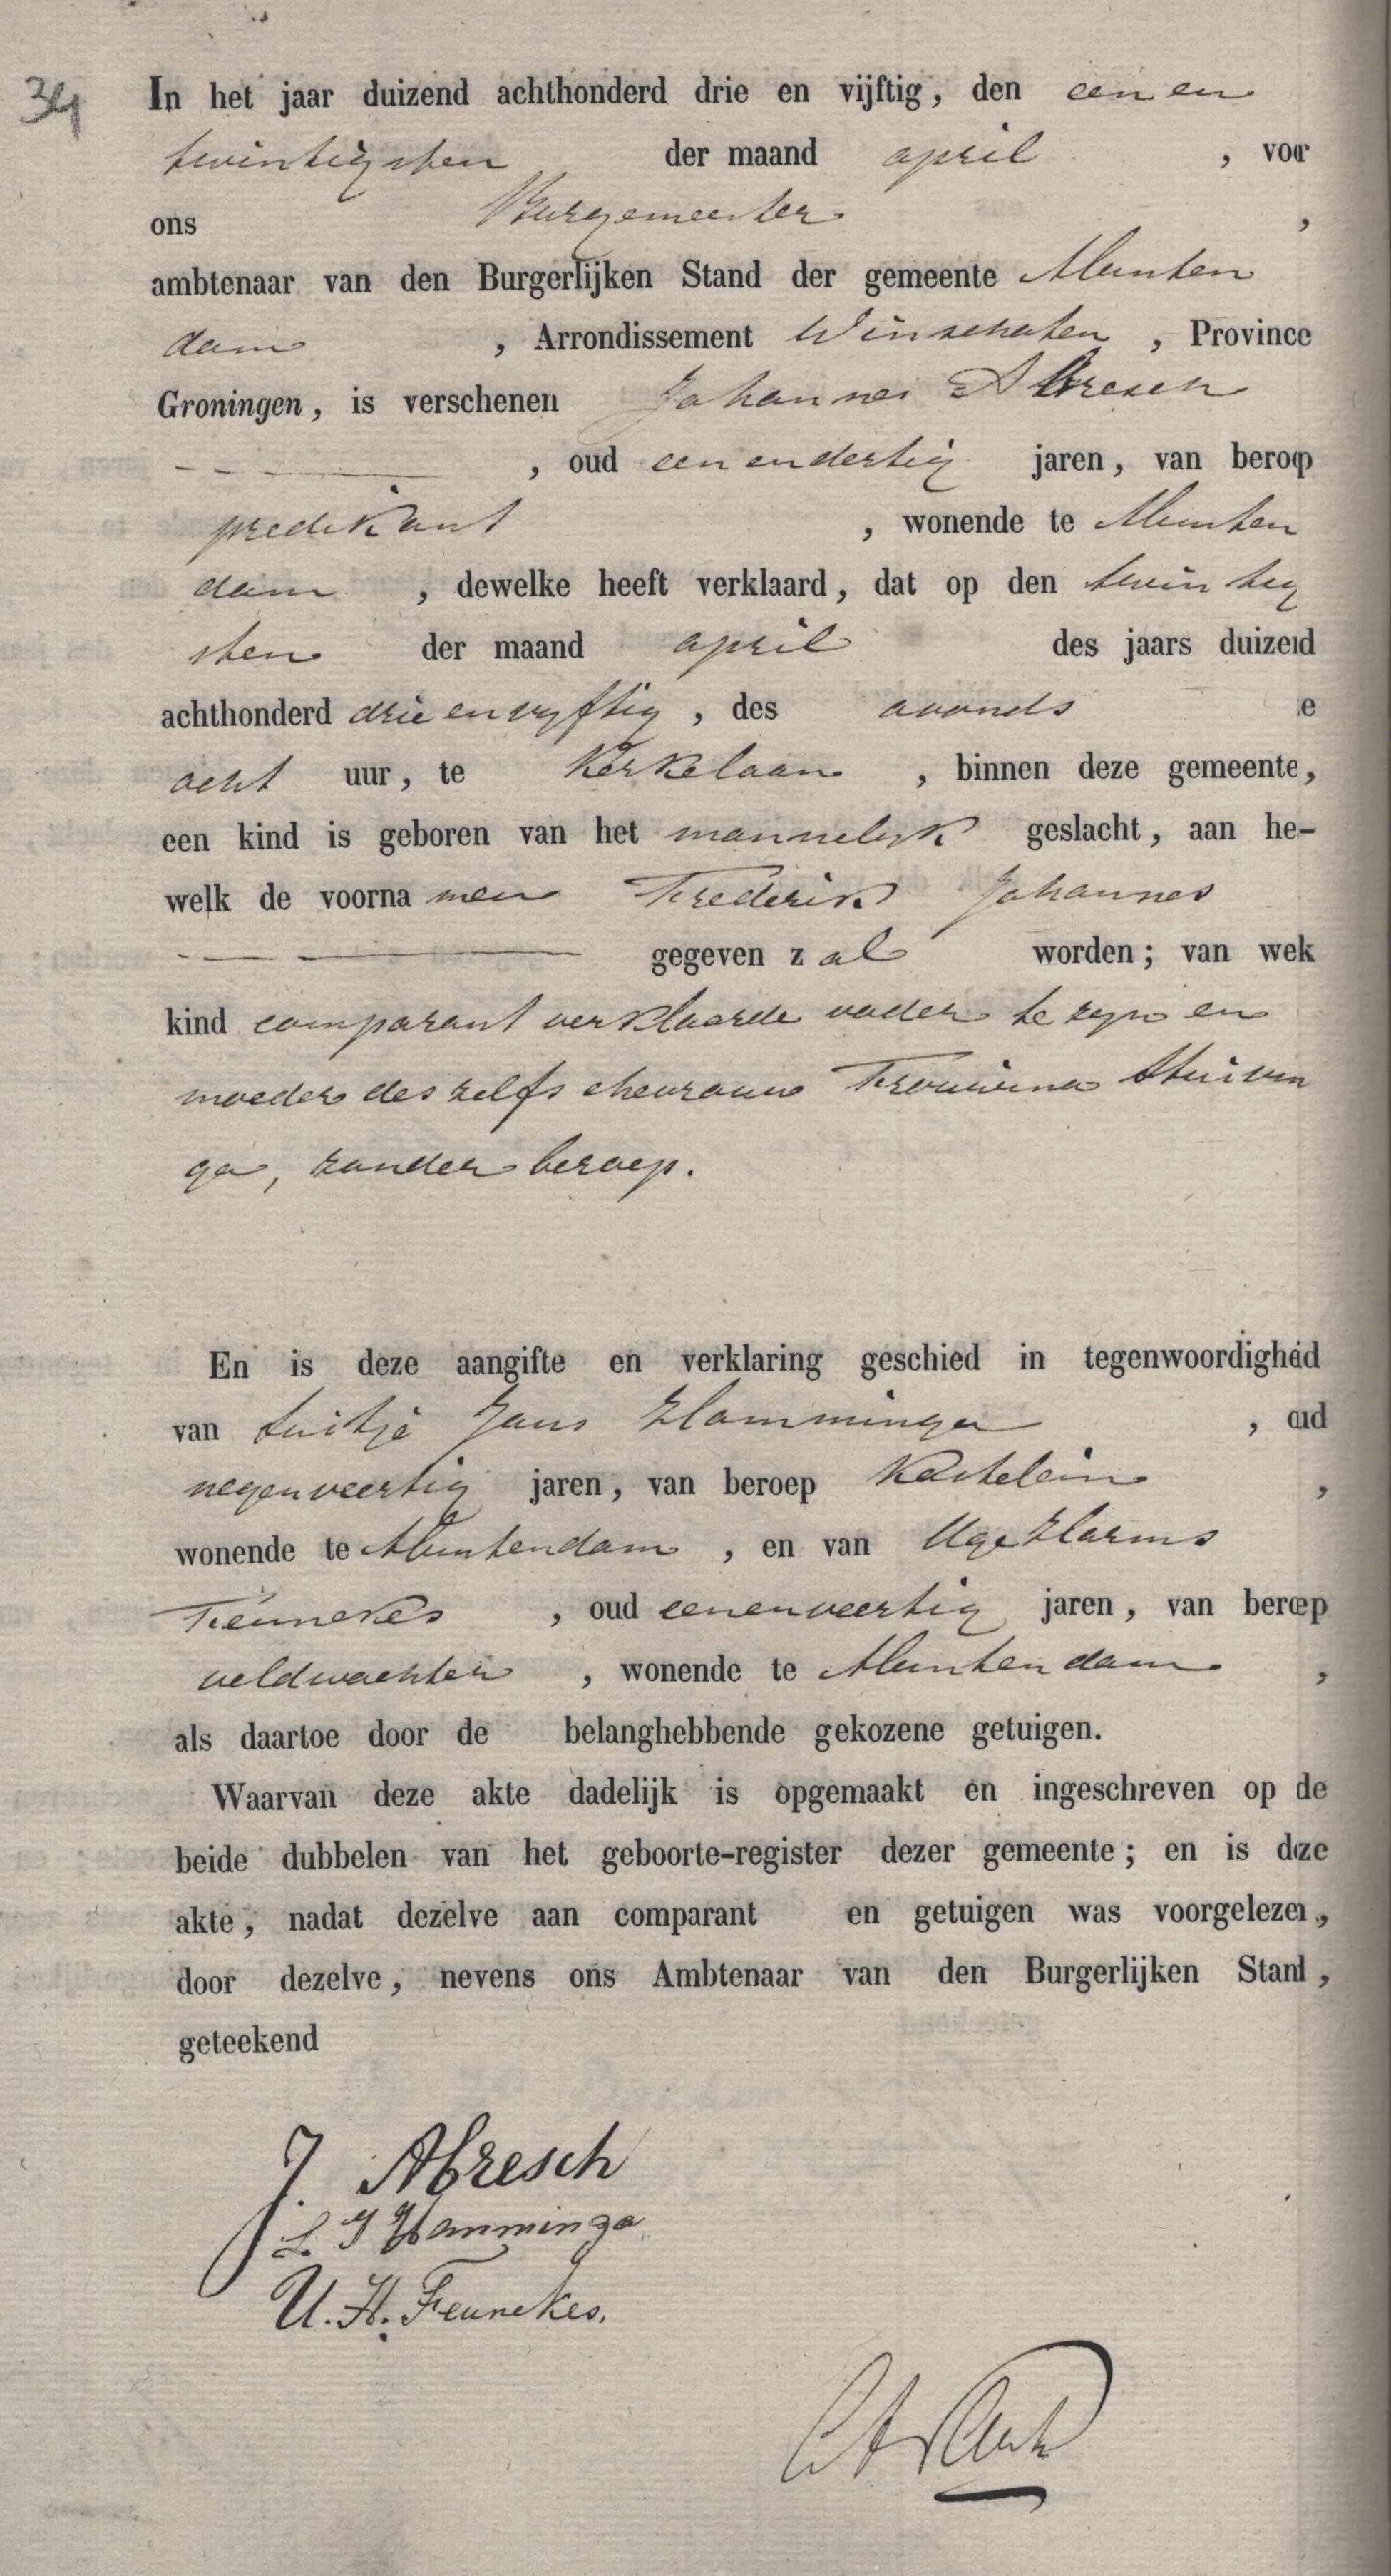 34
In het jaar duizend achthonderd drie en vijftig, den een en
twintigsten der maand april, voor
ons Burgemeester,
ambtenaar van den Burgerlijken Stand der gemeente Munten
dam, Arrondissement Winschoten, Province
Groningen, is verschenen Johannes Abresch
, oud een en dertig jaren, van beroep
predikant, wonende te Munten
dam, dewelke heeft verklaard, dat op den twintig
sten der maand april des jaars duizend
achthonderd drie en vyftig, des avonds te
acht uur, te Kerkelaan, binnen deze gemeente,
een kind is geboren van het mannelyk geslacht, aan het-
welk de voorna men Frederik Johannes
gegeven z al worden; van welk
kind comparant verklaarde vader te zyn en
moeder des zelfs ehevrouw Frouwina Stuivin
ga, zonder beroep.
En is deze aangifte en verklaring geschied in tegenwoordigheid
van Luitje Jans Hamminga, oud
negenveertig jaren, van beroep Kastelein,
wonende te Muntendam, en van Uge Harms
Feunekes, oud eenenveertig jaren, van beroep
veldwachter, wonende te Muntendam,
als daartoe door de belanghebbende gekozene getuigen.
Waarvan deze akte dadelijk is opgemaakt en ingeschreven op de
beide dubbelen van het geboorte-register dezer gemeente; en is deze
akte, nadat dezelve aan comparant en getuigen was voorgelezen,
door dezelve, nevens ons Ambtenaar van den Burgerlijken Stand,
geteekend
J Abresch
L J Hamminga
U. H. Feunekes.